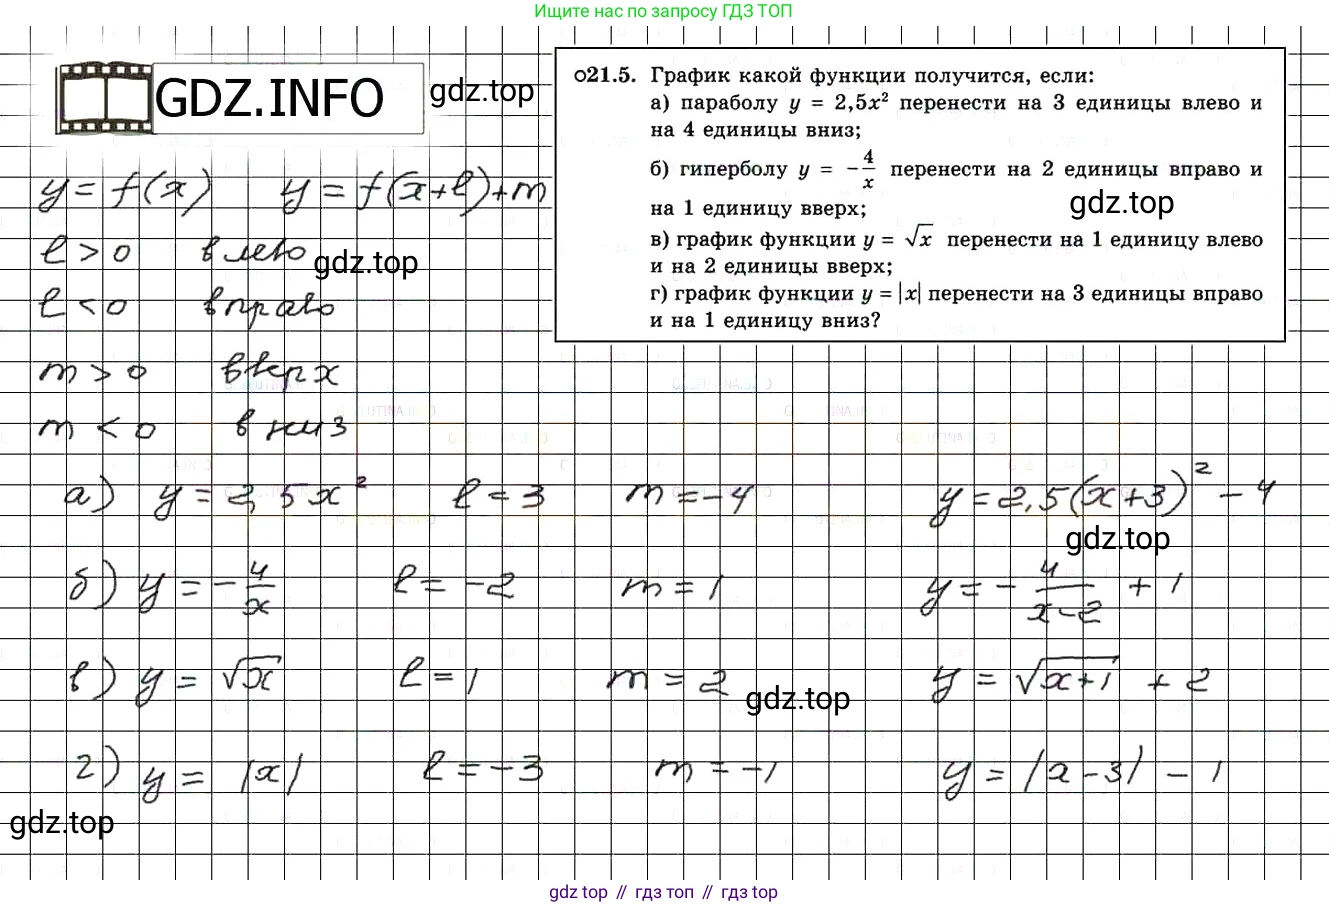 Ищите нас по запросу ГДЗ ТОП
GDZ.INFO
gdz.top
21.5. График какой функции получится, если:
а) параболу y = 2,5x² перенести на 3 единицы влево и
на 4 единицы вниз;
б) гиперболу y = -4/x перенести на 2 единицы вправо и
на 1 единицу вверх;
gdz.top
в) график функции y = √x перенести на 1 единицу влево
и на 2 единицы вверх;
г) график функции y = |x| перенести на 3 единицы вправо
и на 1 единицу вниз?
y = f(x) y = f(x+l)+m
l > 0 влево
gdz.top
l < 0 вправо
m > 0 вверх
m < 0 вниз
а) y = 2,5x² l = 3 m = -4 y = 2,5(x+3)² - 4
gdz.top
б) y = -4/x l = -2 m = 1 y = -4/(x-2) + 1
в) y = √x l = 1 m = 2 y = √(x+1) + 2
gdz.top
г) y = |x| l = -3 m = -1 y = |x-3| - 1
gdz.top
gdz top // гдз топ // gdz top